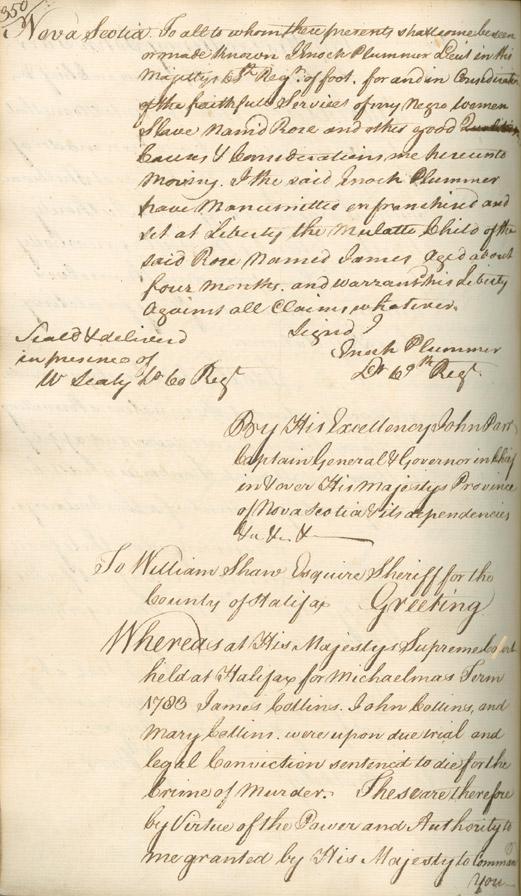 350
Nova Scotia. To all to whom these presents shall come be seen
or made known Inoch Plummer Leiut in His
Majestys Regt. of foot. for and in Consideration
of the faithfull Services of my Negro women
Slave Namd Rose and other good
Causes & Considerations me hereunto
Moving. I the said Inoch Plummer
have Manumitted enfranchised and
set at Liberty the Mulatto Child of the
said Rose Named James Aged about
four Months. and warrant his Liberty
against all Claims whatever.
Signd
Seald & deliverd
in presence of
Inoch Plummer
Lt 69th Regt.
W Sealy Lt 60 Regt
By His Excellency John Parr
Captain General & Governor in Chief
in & over His Majestys Province
of Nova Scotia & its dependencies
&c &c &c
To William Shaw Esquire Sheriff for the
County of Halifax Greeting
Whereas at His Majestys Supreme Court
held at Halifax for Michaelmas Term
1783 James Collins. John Collins, and
Mary Collins. were upon due trial and
legal Conviction sentenc'd to die for the
Crime of Murder. These are therefore
by Virtue of the Power and Authority to
me granted by His Majesty to Command
you